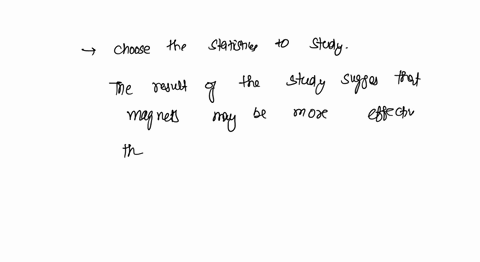 → choose the statistics to study.
The result of the study sugges that
magnets may be more effectiv
th